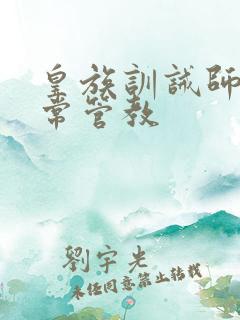 皇族訓誡師
常管教
劉宇光
未經同意禁止轉載